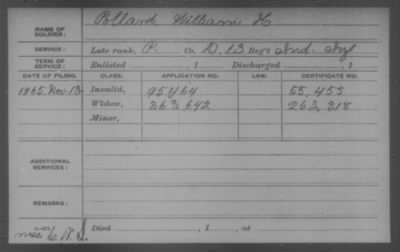 NAME OF SOLDIER: Pollard, William H
SERVICE: Late rank, P. Co. D, 13 Reg't Ind. Inf
TERM OF SERVICE: Enlisted , 1 Discharged , 1
DATE OF FILING. CLASS. APPLICATION NO. LAW. CERTIFICATE NO.
1865, Nov. 13 Invalid, 95464 55,455
Widow, 363,642 263,318
Minor,
ADDITIONAL SERVICES:
REMARKS:
Died , 1 , at